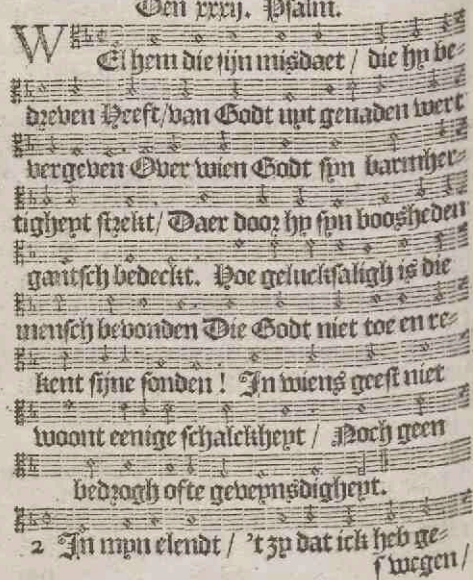 Den xxxij. Psalm.
WEl hem die sijn misdaet / die hy be-
dreven Heeft/van Godt uyt genaden wert
vergeven Over wien Godt syn barmher-
tigheyt strekt/ Daer door hy syn boosheden
gantsch bedeckt. Hoe gelucksaligh is die
mensch bevonden Die Godt niet toe en re-
kent sijne sonden ! In wiens geest niet
woont eenige schalckheyt / Noch geen
bedrogh ofte geveynsdigheyt.
2 In myn elendt / 't zy dat ick heb ge-
swegen /